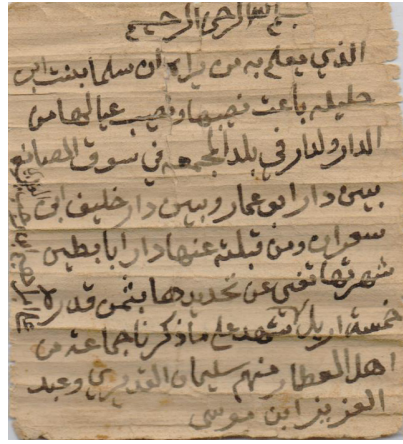 بسم الله الرحمن الرحيم
الذي يعلم به من يراه ان سلما بنت ابن
حليله باعت نصيبها ونصيب عيالها من
الدار ولدار في بلد المجمعه في سوق الصانع
بين دار ابن عمار وبين دار خليف ابن
سعران ومن قبلته عنها دار ابا بطين
شهرتها تغني عن تحديدها بثمن قدره
خمسة اريل شهد على ما ذكرنا جماعة من
اهل العطار منهم سليمان الغديري وعبد
العزيز ابن موسى